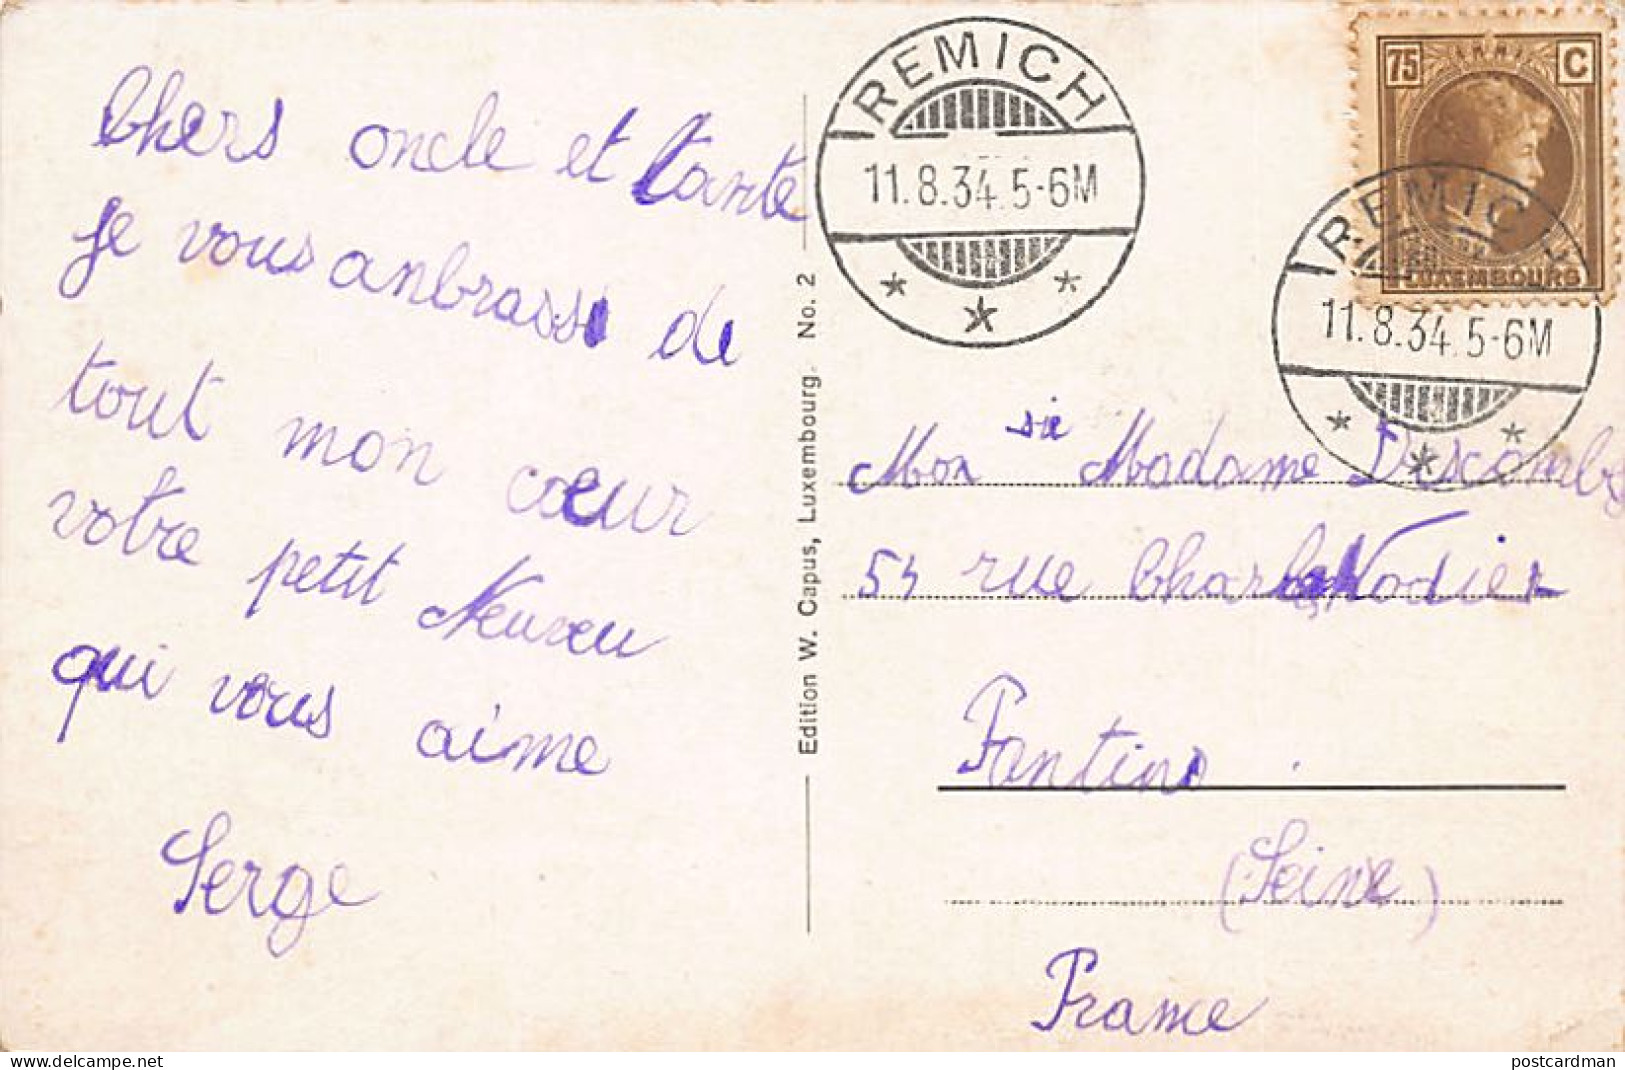 Chers oncle et tante
je vous anbrasse de
tout mon cœur
votre petit Neuveu
qui vous aime
Serge
Edition W. Capus, Luxembourg. No. 2
REMICH
11.8.34. 5-6M
75 C
LUXEMBOURG
REMICH
11.8.34. 5-6M
Mon sie Madame Descombes
54 rue Charles Nodier
Pantins.
(Seine)
France
postcardman